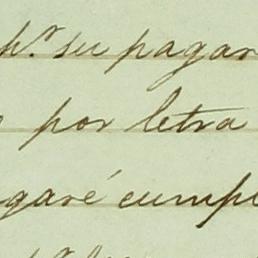 pr. su pagar
por letra
garé cumpl